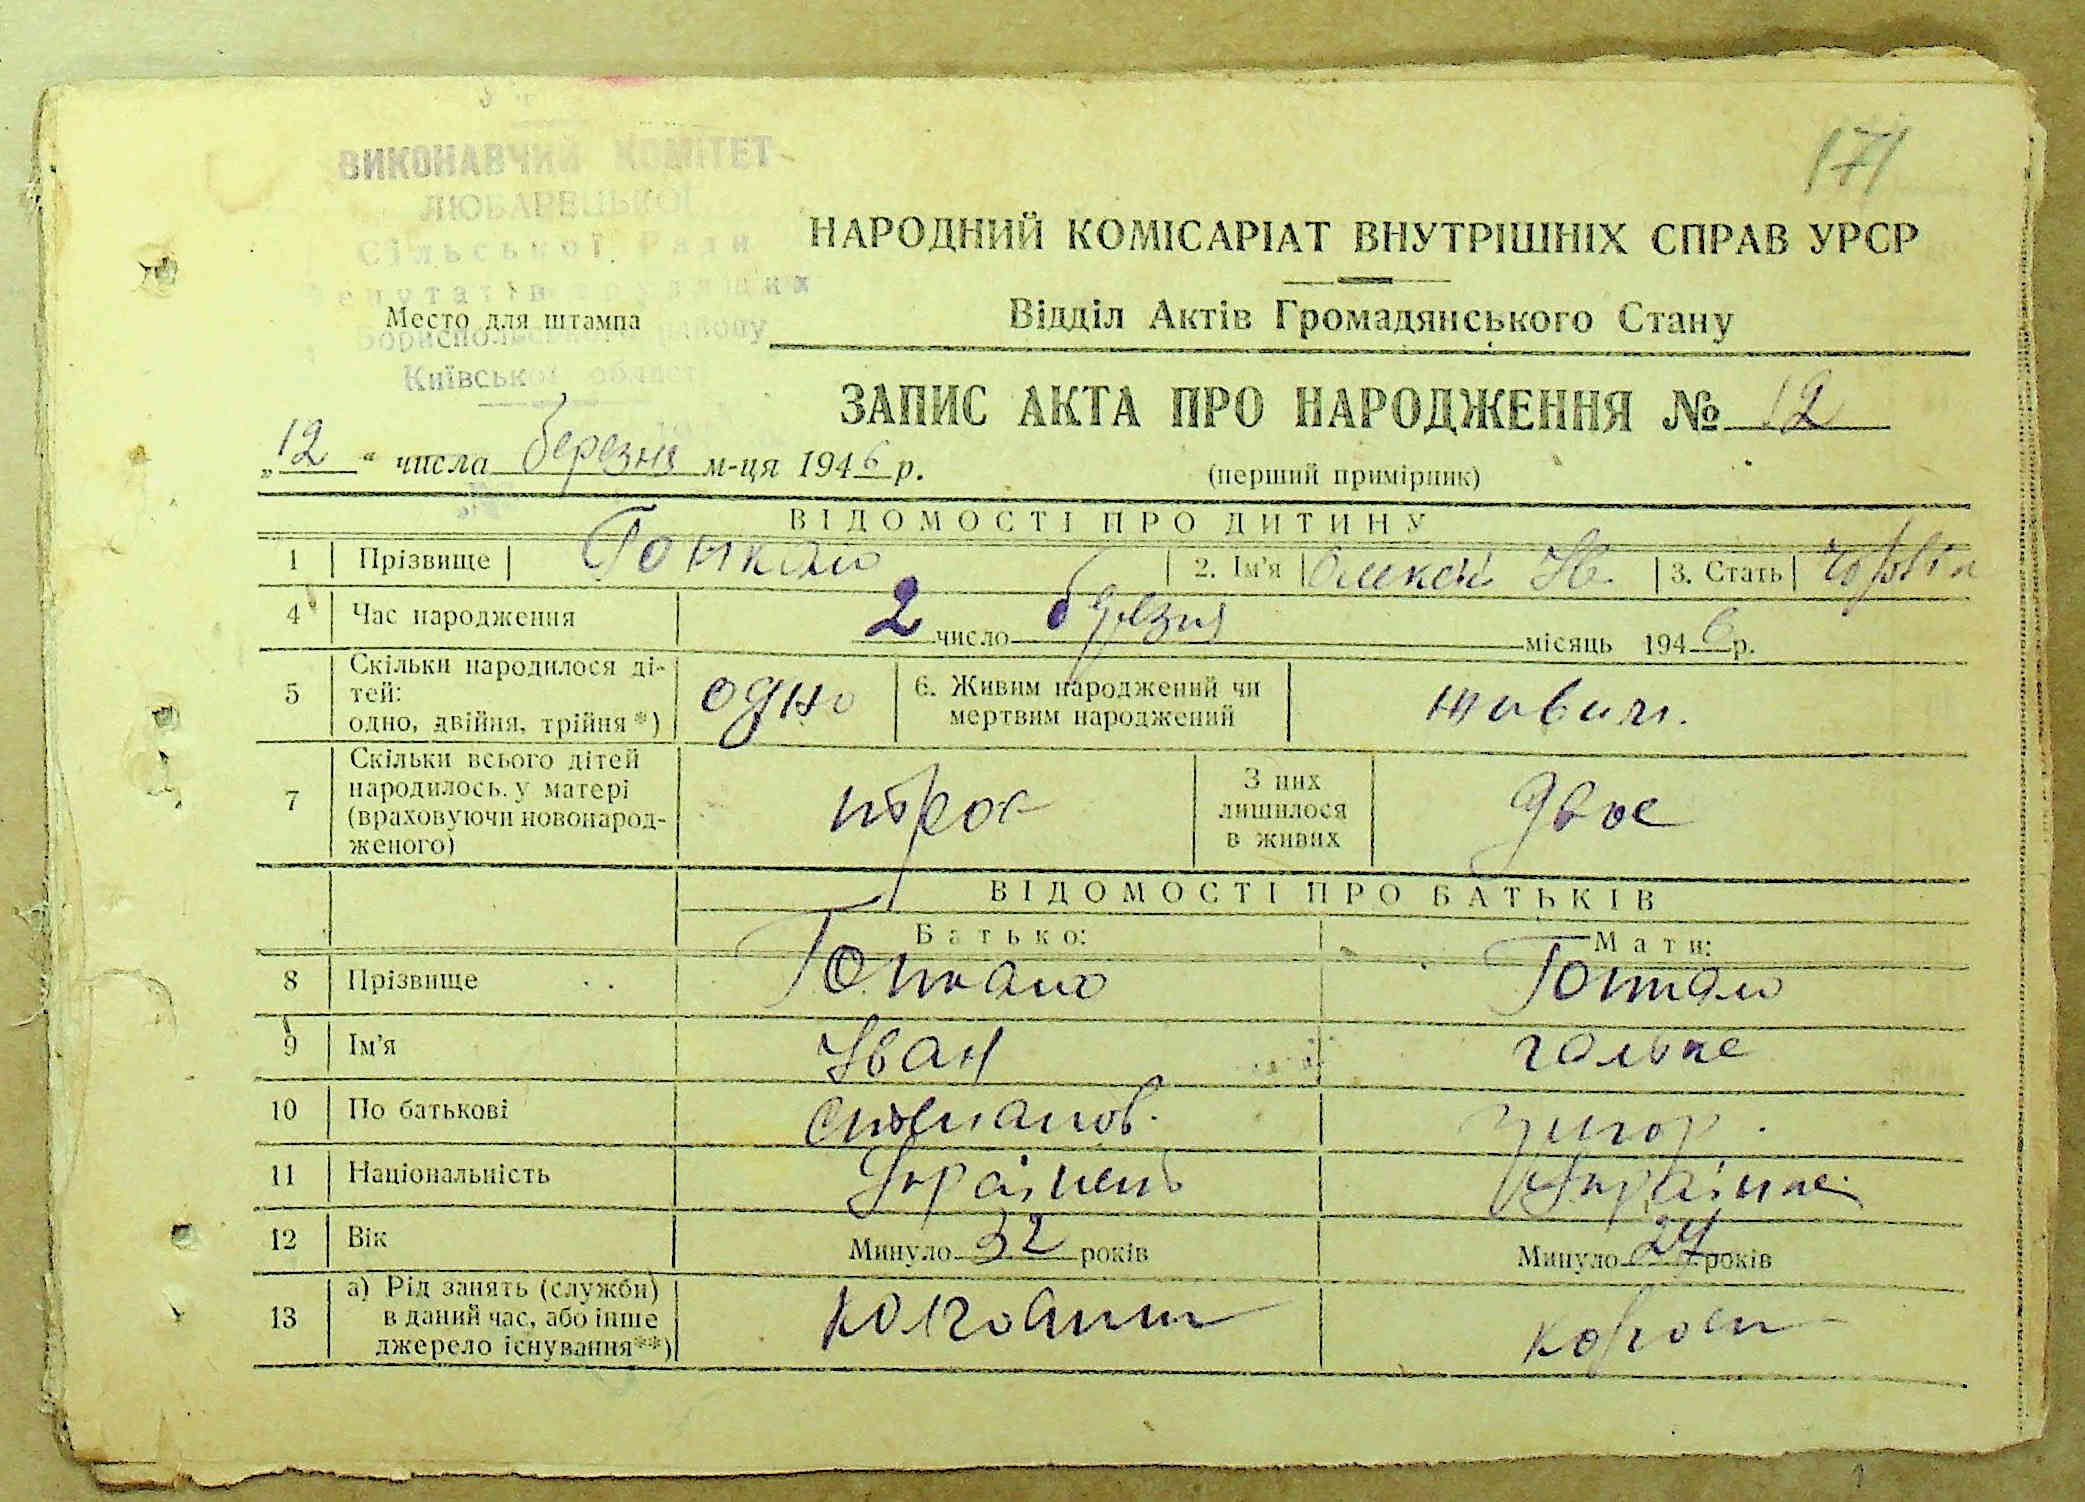 171
ВИКОНАВЧИЙ КОМІТЕТ
ЛЮБАРЕЦЬКОЇ
Сільської Ради
Депутатів трудящих
Бориспольського району
Київської області
Место для штампа
НАРОДНИЙ КОМІСАРІАТ ВНУТРІШНІХ СПРАВ УРСР
Відділ Актів Громадянського Стану
ЗАПИС АКТА ПРО НАРОДЖЕННЯ № 12
„12“ числа березня м-ця 1946 р.
(перший примірник)
ВІДОМОСТІ ПРО ДИТИНУ
1 Прізвище 2. Ім'я Олексій Ів. 3. Стать
4 Час народження 2 число березня місяць 1946 р.
5 Скільки народилося ді-
тей:
одно, двійня, трійня*) одно 6. Живим народжений чи
мертвим народжений живим.
7 Скільки всього дітей
народилось у матері
(враховуючи новонарод-
женого) троє З них
лишилося
в живих двоє
ВІДОМОСТІ ПРО БАТЬКІВ
Батько: Мати:
8 Прізвище
9 Ім'я Іван
10 По батькові Степанов.
11 Національність Українець Українка
12 Вік Минуло 32 років Минуло років
13 а) Рід занять (служби)
в даний час, або інше
джерело існування**) колгоспник